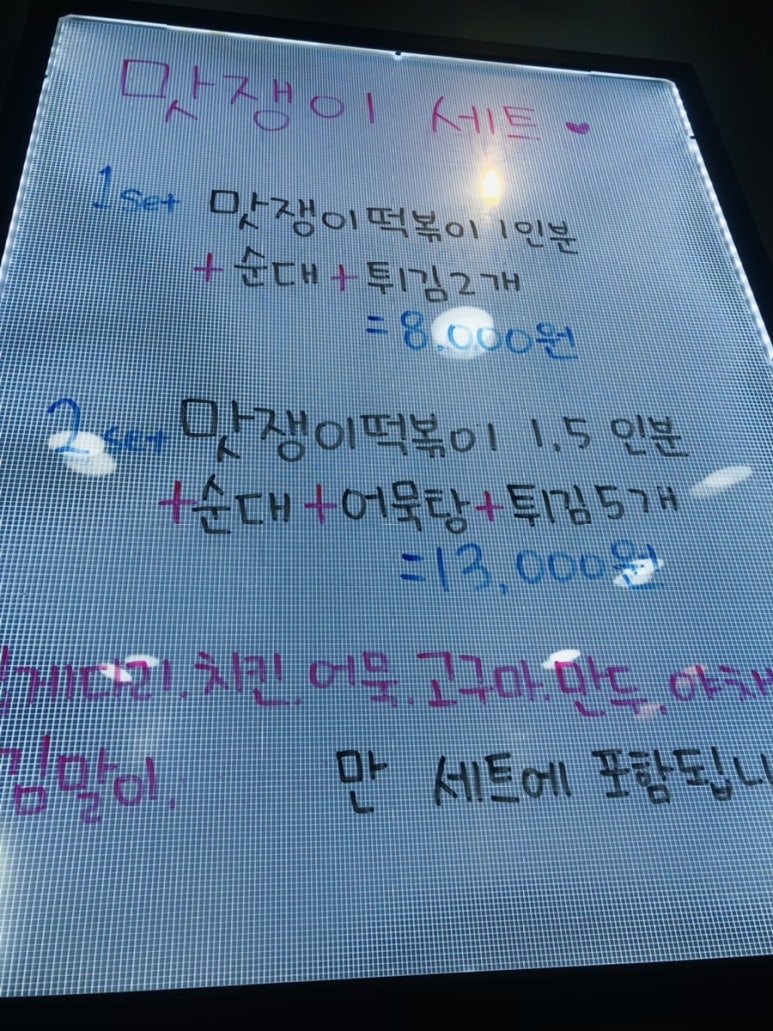 맛쟁이 세트 ♥
1 set 맛쟁이떡볶이 1인분
+순대+튀김2개
=8,000원
2 set 맛쟁이떡볶이 1.5 인분
+순대+어묵탕+튀김5개
=13,000원
게다리.치킨.어묵.고구마.만두.야채
김말이.
만 세트에 포함됩니